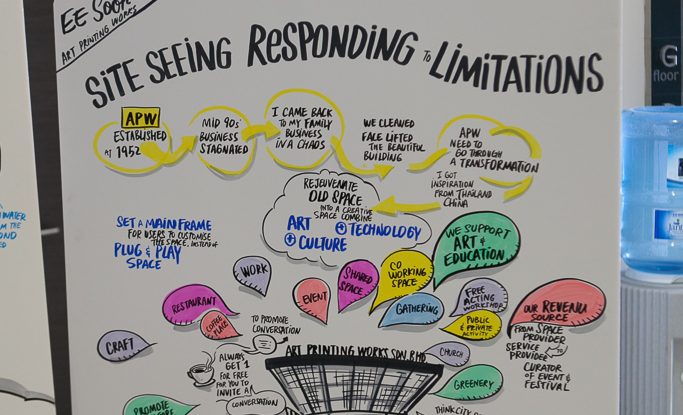 EE SOON
ART PRINTING WORKS
SITE SEEING RESPONDING TO LIMITATIONS
APW
ESTABLISHED
AT 1952
MID 90s'
BUSINESS
STAGNATED
I CAME BACK
TO MY FAMILY
BUSINESS
IN A CHAOS
WE CLEANED
FACE LIFTED
THE BEAUTIFUL
BUILDING
APW
NEED TO
GO THROUGH
A TRANSFORMATION
I GOT
INSPIRATION
FROM THAILAND
CHINA
REJUVENATE
OLD SPACE
INTO A CREATIVE
SPACE COMBINE
ART + TECHNOLOGY
+ CULTURE
SET A MAINFRAME
FOR USERS TO CUSTOMISE
THE SPACE, INSTEAD OF
PLUG & PLAY
SPACE
WE SUPPORT
ART &
EDUCATION
WORK
EVENT
SHARED
SPACE
CO
WORKING
SPACE
GATHERING
FREE
ACTING
WORKSHOP
PUBLIC
& PRIVATE
ACTIVITY
OUR REVENUE
SOURCE
FROM SPACE
PROVIDER
SERVICE
PROVIDER
CURATOR
OF EVENT &
FESTIVAL
RESTAURANT
COFFEE
PLACE
TO PROMOTE
CONVERSATION
CRAFT
ALWAYS
GET 1
FOR FREE
FOR YOU TO
INVITE A
CONVERSATION
ART PRINTING WORKS SDN BHD
CHURCH
GREENERY
PROMOTE
THINK CITY
WATER
G
floor